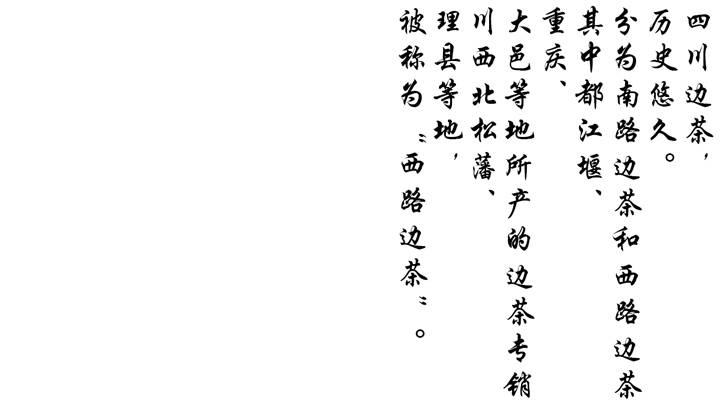 四川边茶,
历史悠久。
分为南路边茶和西路边茶
其中都江堰、
重庆、
大邑等地所产的边茶专销
川西北松藩、
理县等地,
被称为“西路边茶”。